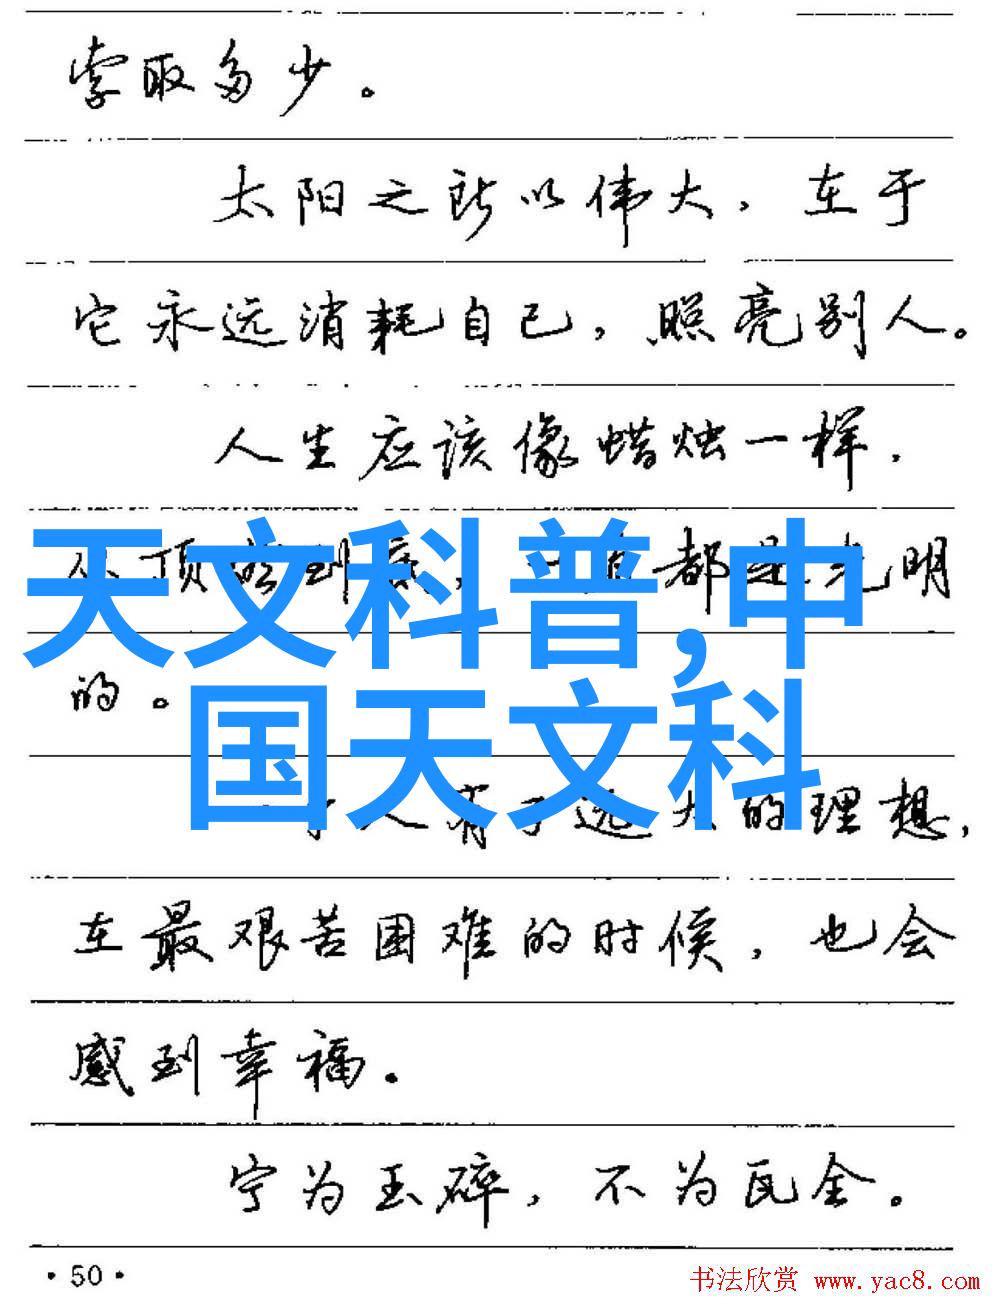 索取多少。
太阳之所以伟大，在于
它永远消耗自己，照亮别人。
人生应该像蜡烛一样，
从顶燃到底，一直都是光明
天文科普,中
的。
国天文科
人有了远大的理想，
在最艰苦困难的时候，也会
感到幸福。
宁为玉碎，不为瓦全。
·50·
书法欣赏 www.yac8.com